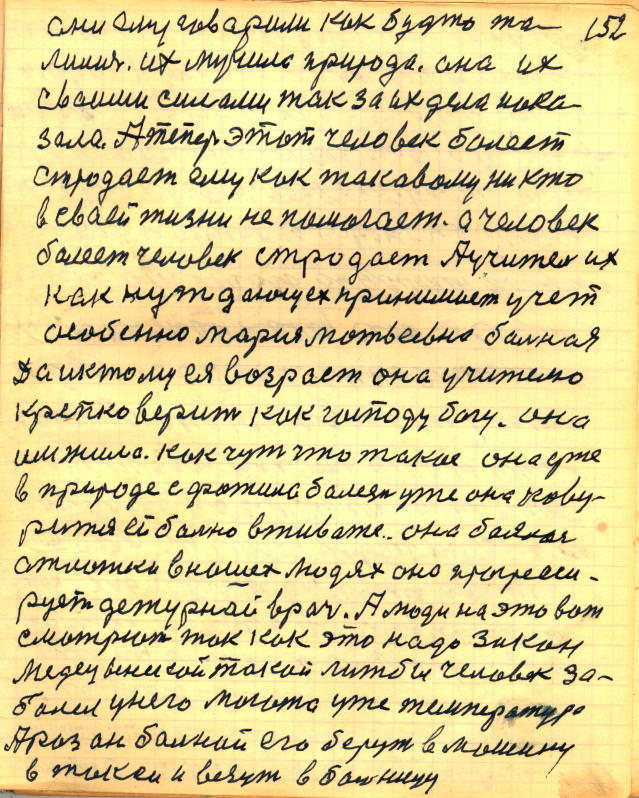 они ему говарили как будто жа- 152
лили. их мучила природа. она их
своими силами так за их дела нака-
зала. А тепер этот человек болеет
стродает ему как таковому никто
в сваей жизни не помогает. а человек
балеет человек стродает А учител их
как нуждающех принимает учет
особенно мария мотвеевна балная
Да и ктому ея возраст она учителю
крепко верит как господу богу. она
им жила. как чут что такое она уже
в природе
уже она
ей балное в животе.. она
в ношех людях оно прогреси-
рует дежурнай врач. А люди на это вот
смотрют так как это надо закон
такой читобы человек за-
балел у него могота уже температура
А роз он балной его берут в мошину
в такси и везут в балницу